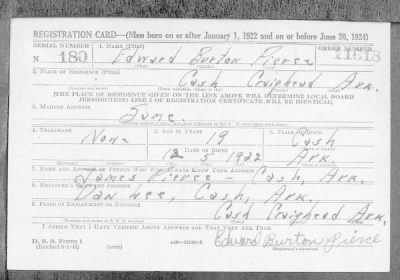 REGISTRATION CARD—(Men born on or after January 1, 1922 and on or before June 30, 1924)
SERIAL NUMBER 1. NAME (Print) ORDER NUMBER
N 180 Edward Burton Pierce 11518
2. PLACE OF RESIDENCE (Print)
Cash Craighead Ark.
[THE PLACE OF RESIDENCE GIVEN ON THE LINE ABOVE WILL DETERMINE LOCAL BOARD
JURISDICTION; LINE 2 OF REGISTRATION CERTIFICATE WILL BE IDENTICAL]
3. MAILING ADDRESS
Same.
4. TELEPHONE 5. AGE IN YEARS 6. PLACE OF BIRTH
None 19 Cash
DATE OF BIRTH
12 5 1922 Ark.
7. NAME AND ADDRESS OF PERSON WHO WILL ALWAYS KNOW YOUR ADDRESS
James Pierce - Cash, Ark.
8. EMPLOYER'S NAME AND ADDRESS
Dan Lee, Cash, Ark.
9. PLACE OF EMPLOYMENT OR BUSINESS
Cash Craighead Ark.
I AFFIRM THAT I HAVE VERIFIED ABOVE ANSWERS AND THAT THEY ARE TRUE.
D. S. S. Form 1 (over)
Edward Burton Pierce